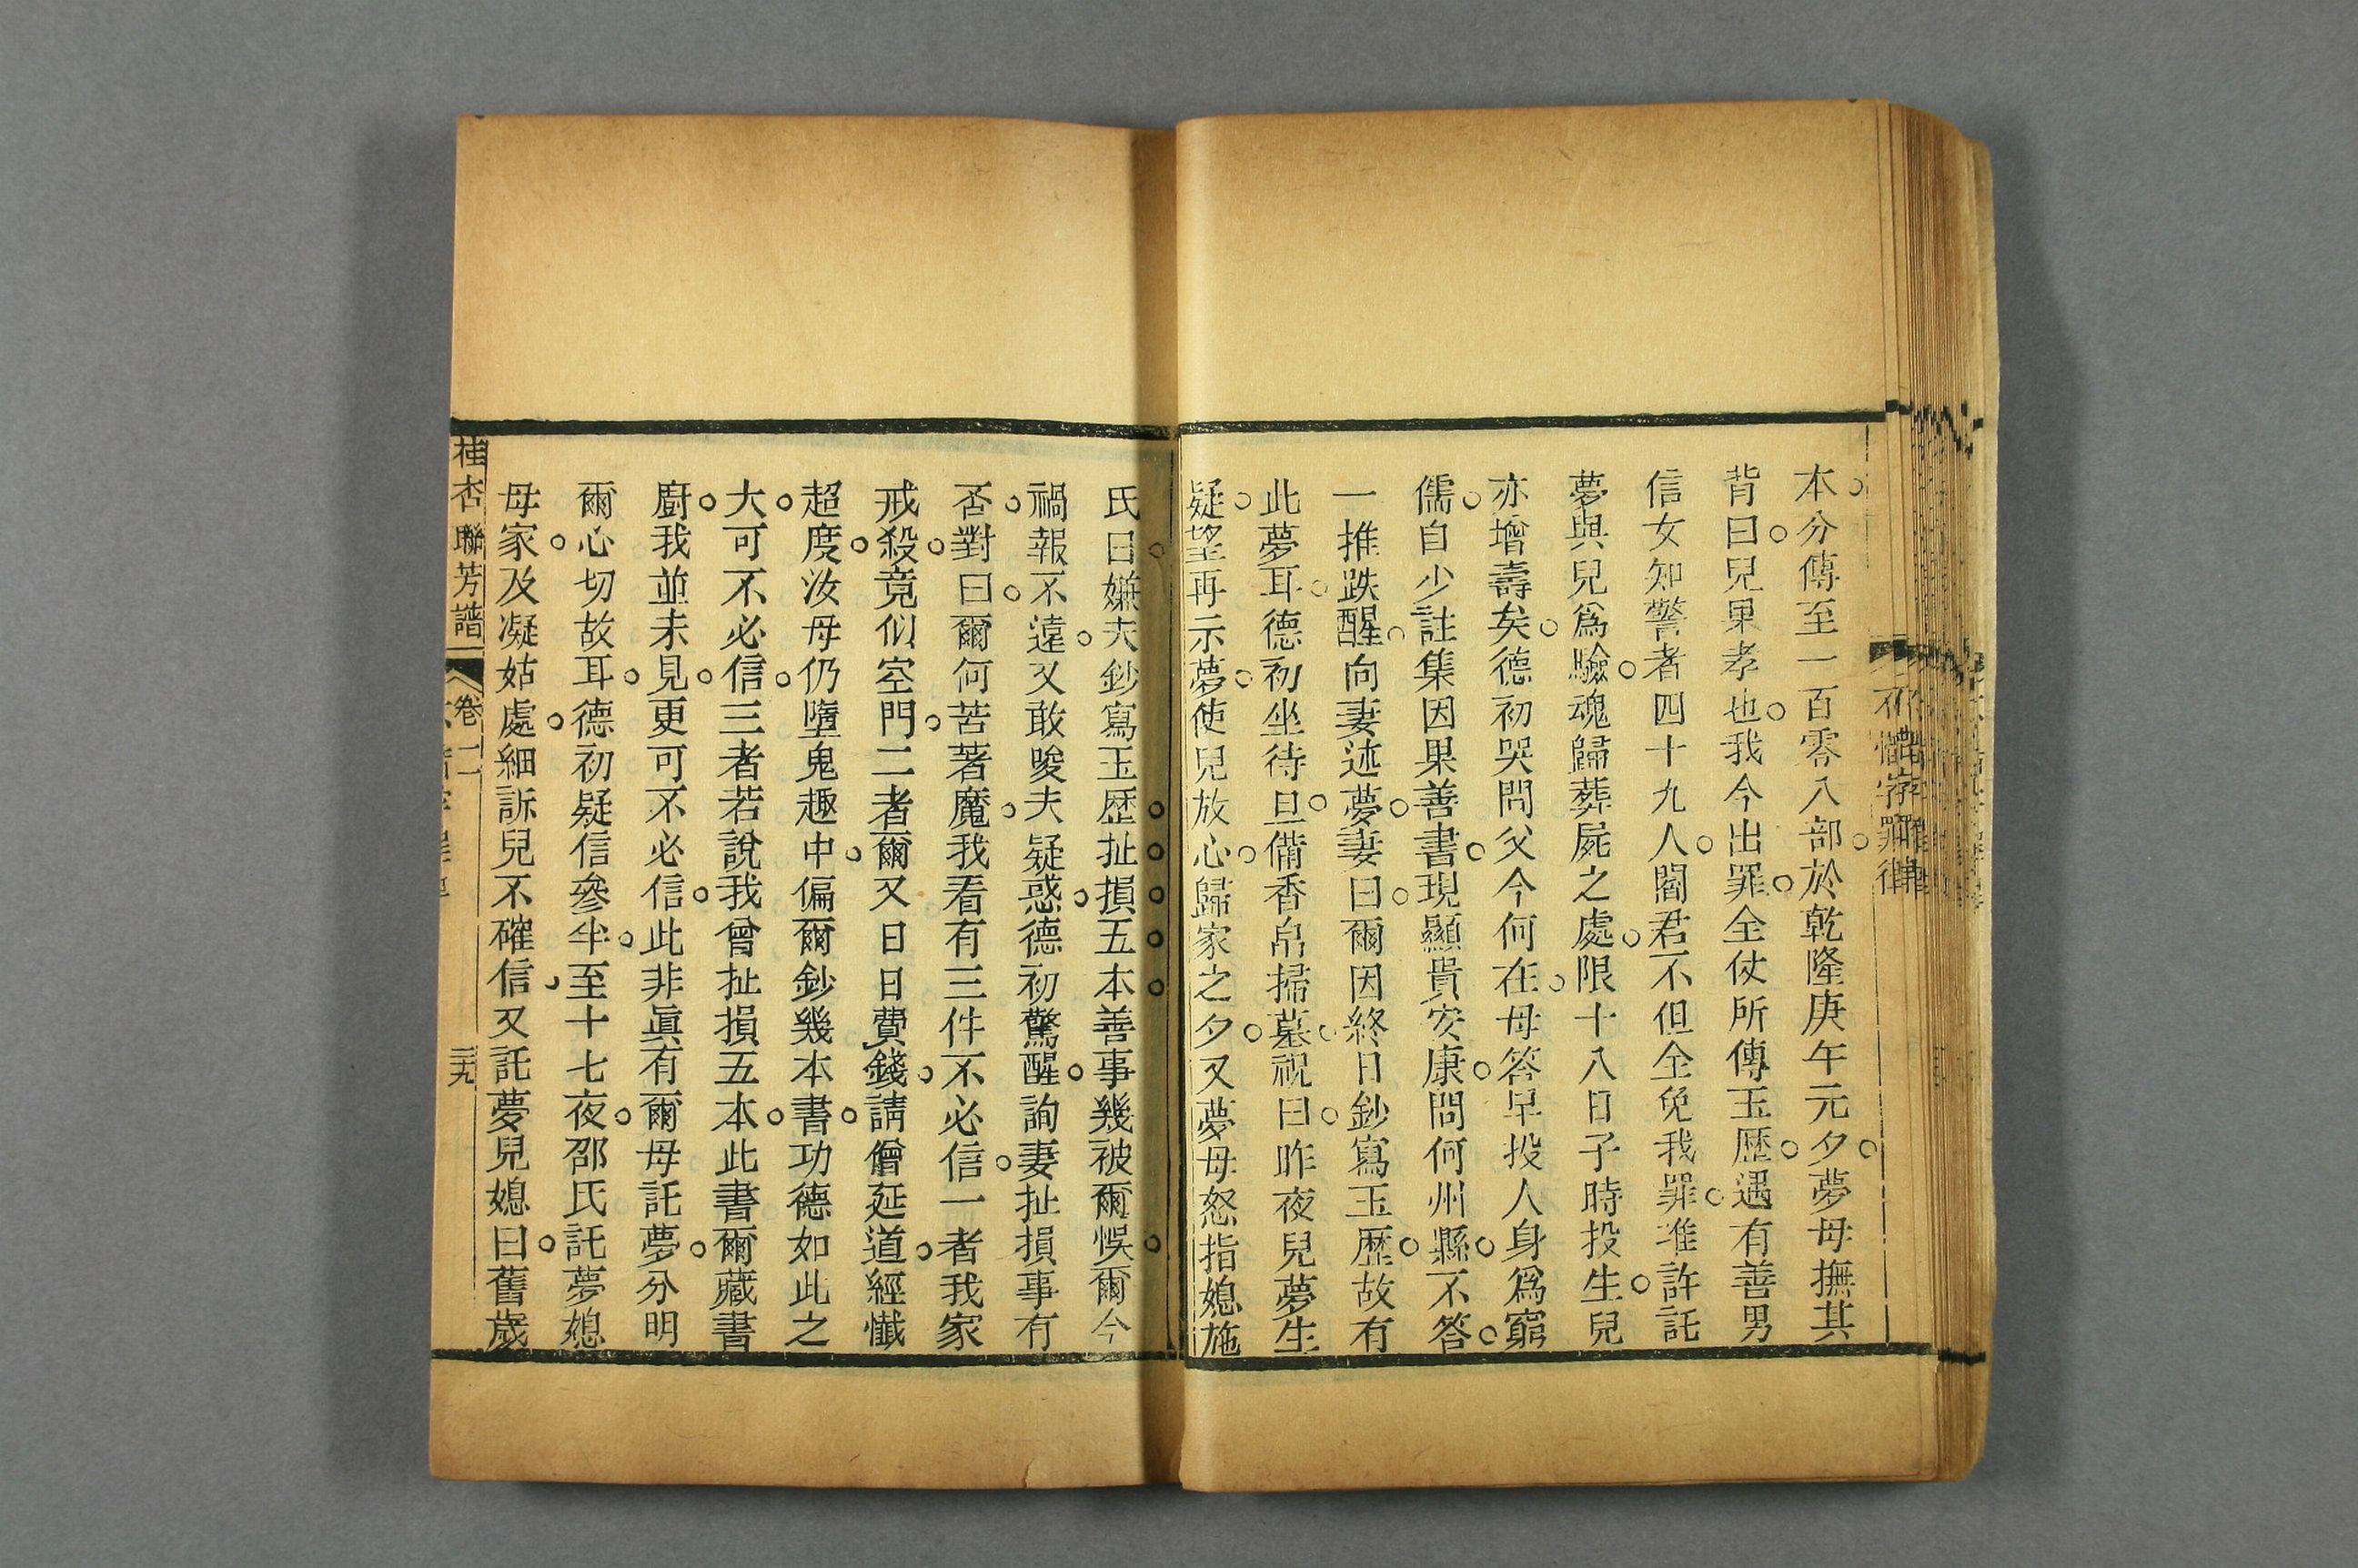 本分傳至一百零八部於乾隆庚午元夕夢母撫其
背曰兒果孝也我今出罪全仗所傳玉歷遇有善男
信女知警者四十九人閻君不但全免我罪准許託
夢與兒爲驗魂歸葬屍之處限十八日子時投生兒
亦增壽矣德初哭問父今何在母答早投人身爲窮
儒自少註集因果善書現顯貴安康問何州縣不答
一推跌醒向妻述夢妻曰爾因終日鈔寫玉歷故有
此夢耳德初坐待旦備香帛掃墓祝曰昨夜兒夢生
疑望再示夢使兒放心歸家之夕又夢母怒指媳施
氏曰嫌夫鈔寫玉歷扯損五本善事幾被爾悞爾今
禍報不遠又敢唆夫疑惑德初驚醒詢妻扯損事有
否對曰爾何苦著魔我看有三件不必信一者我家
戒殺竟似空門二者爾又日日費錢請僧延道經懺
超度汝母仍墮鬼趣中偏爾鈔幾本書功德如此之
大可不必信三者若說我曾扯損五本此書爾藏書
廚我並未見更可不必信此非眞有爾母託夢分明
爾心切故耳德初疑信參半至十七夜邵氏託夢媳
母家及凝姑處細訴兒不確信又託夢兒媳曰舊歲
桂杏聯芳譜 卷二 三九